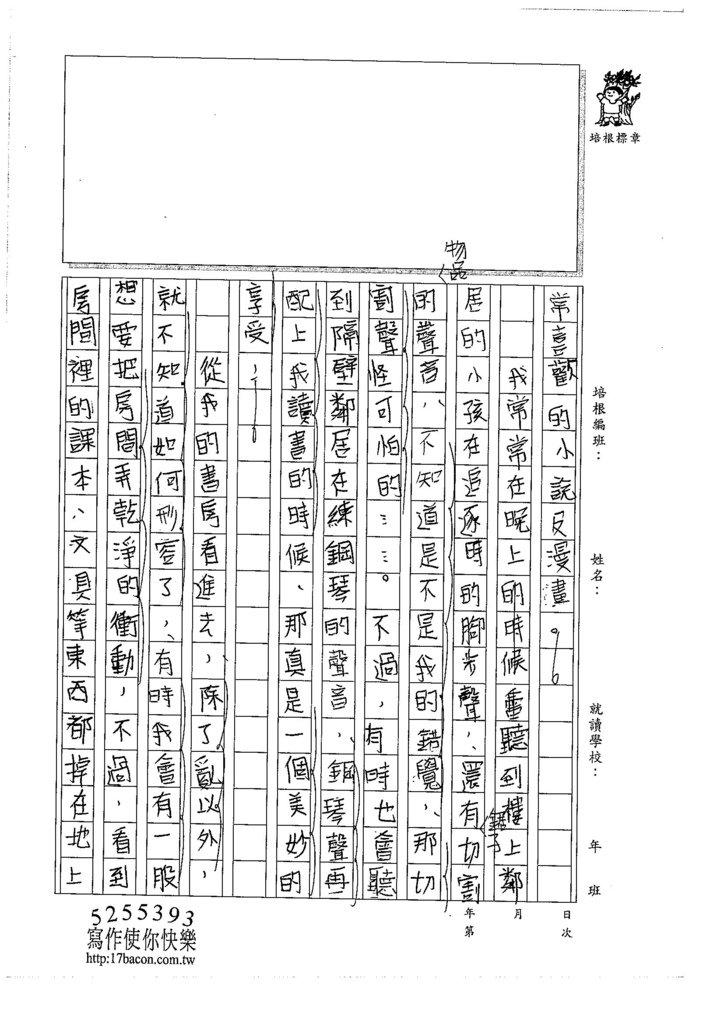 培根標章
培根編班：
姓名：
就讀學校：
年 班
年 月 日
第 次
常喜歡的小說及漫畫。
我常常在晚上的時候會聽到樓上鄰
居的小孩在追逐時的腳步聲，還有切割
物品
的聲音，不知道是不是我的錯覺，那切
割聲怪可怕的……。不過，有時也會聽
到隔壁鄰居在練鋼琴的聲音，鋼琴聲再
配上我讀書的時候，那真是一個美妙的
享受！
從我的書房看進去，除了亂以外，
就不知道如何形容了，有時我會有一股
想要把房間弄乾淨的衝動，不過，看到
房間裡的課本、文具等東西都掉在地上
5255393
寫作使你快樂
http:17bacon.com.tw